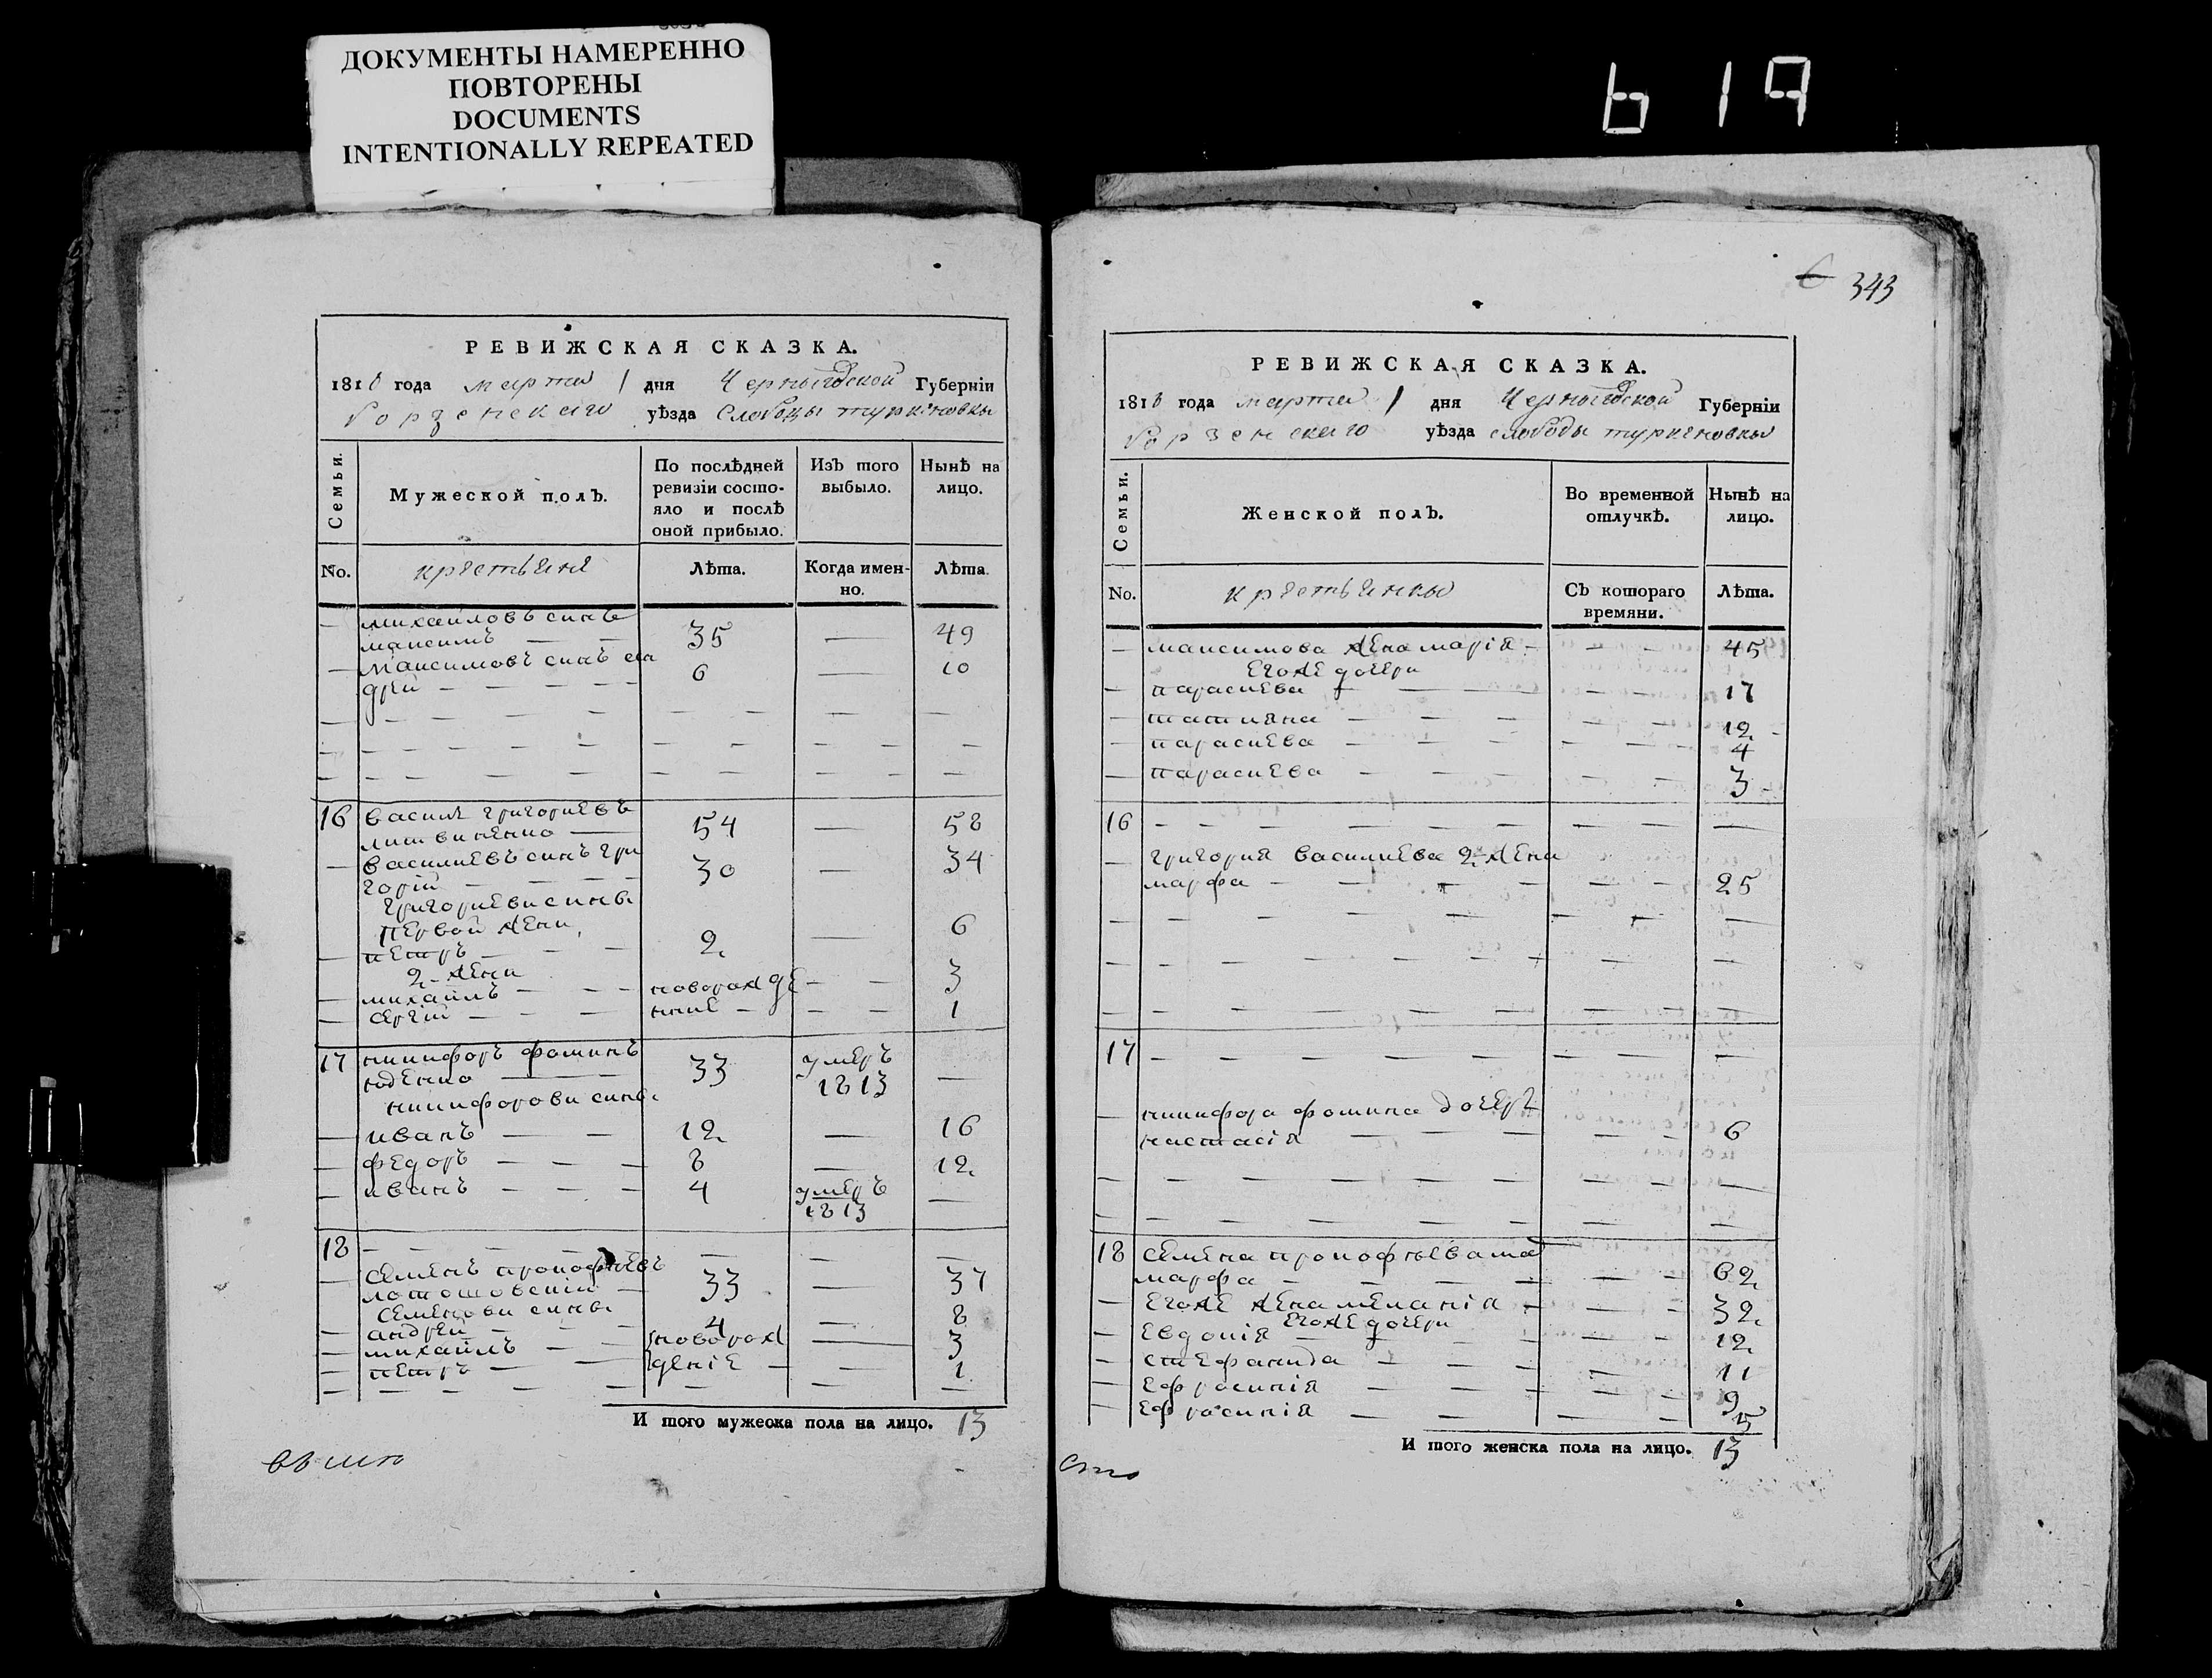 ДОКУМЕНТЫ НАМЕРЕННО
ПОВТОРЕНЫ
DOCUMENTS
INTENTIONALLY REPEATED
619
РЕВИЖСКАЯ СКАЗКА.
1816 года марта 1 дня Черниговской Губернїи
Борзенскаго уѣзда Слободы туркеновки
Семьи.
Мужеской полъ.
По послѣдней ревизїи состояло и послѣ оной прибыло.
Изъ того выбыло.
Нынѣ на лицо.
No.
Лѣта.
Когда именно.
Лѣта.
михайловъ синъ
максимъ — — 35 — 49
— максимовъ синъ ан
дрей — — — — 6 — 10
16 василь григориевъ
литвиненко — 54 — 58
— василиевъ синъ гри
горій — — — 30 — 34
григориеви сины
первой жени
— петръ — — 2 — 6
2 жени
— михайлъ — — новорожде — — 3
— сергій — — нние — — — 1
17 никифоръ фоминъ
33 умеръ 1813 —
никифорови сины
— иванъ — — 12 — 16
— федоръ — — — 8 — 12
— иванъ — — — 4 умеръ 1813 —
18 — — — — — — —
— семенъ прокофиевъ
33 — 37
семенови сины
— андрей — — 4 — 8
— михайлъ — — новорож — 3
— петръ — — деніе — — 1
И того мужеска пола на лицо. 13
343
РЕВИЖСКАЯ СКАЗКА.
1816 года марта 1 дня Черниговской Губернїи
Борзенскаго уѣзда слободы туркеновки
Семьи.
Женской полъ.
Во временной отлучкѣ.
Нынѣ на лицо.
No.
Съ котораго времяни.
Лѣта.
— максимова жена марія — — — — 45
егоже дочери
— параскева — — — — 17
— татияна — — — — 12
— параскева — — — — 4
— параскева — — — — 3
16 — — — — — — — — —
— григория василиева 2 жена
марфа — — — — — — 25
17 — — — — — — — — —
— никифора фомина дочерь
настасія — — — — — 6
18 семена прокофиева ма
марфа — — — — — — 62
— егоже жена меланія — — — 32
егоже дочери
— евдокія — — — — 12
— стефанида — — — — — 11
— ефросинія — — — — — 9
— ефросинія — — — — — 5
И того женска пола на лицо. 13